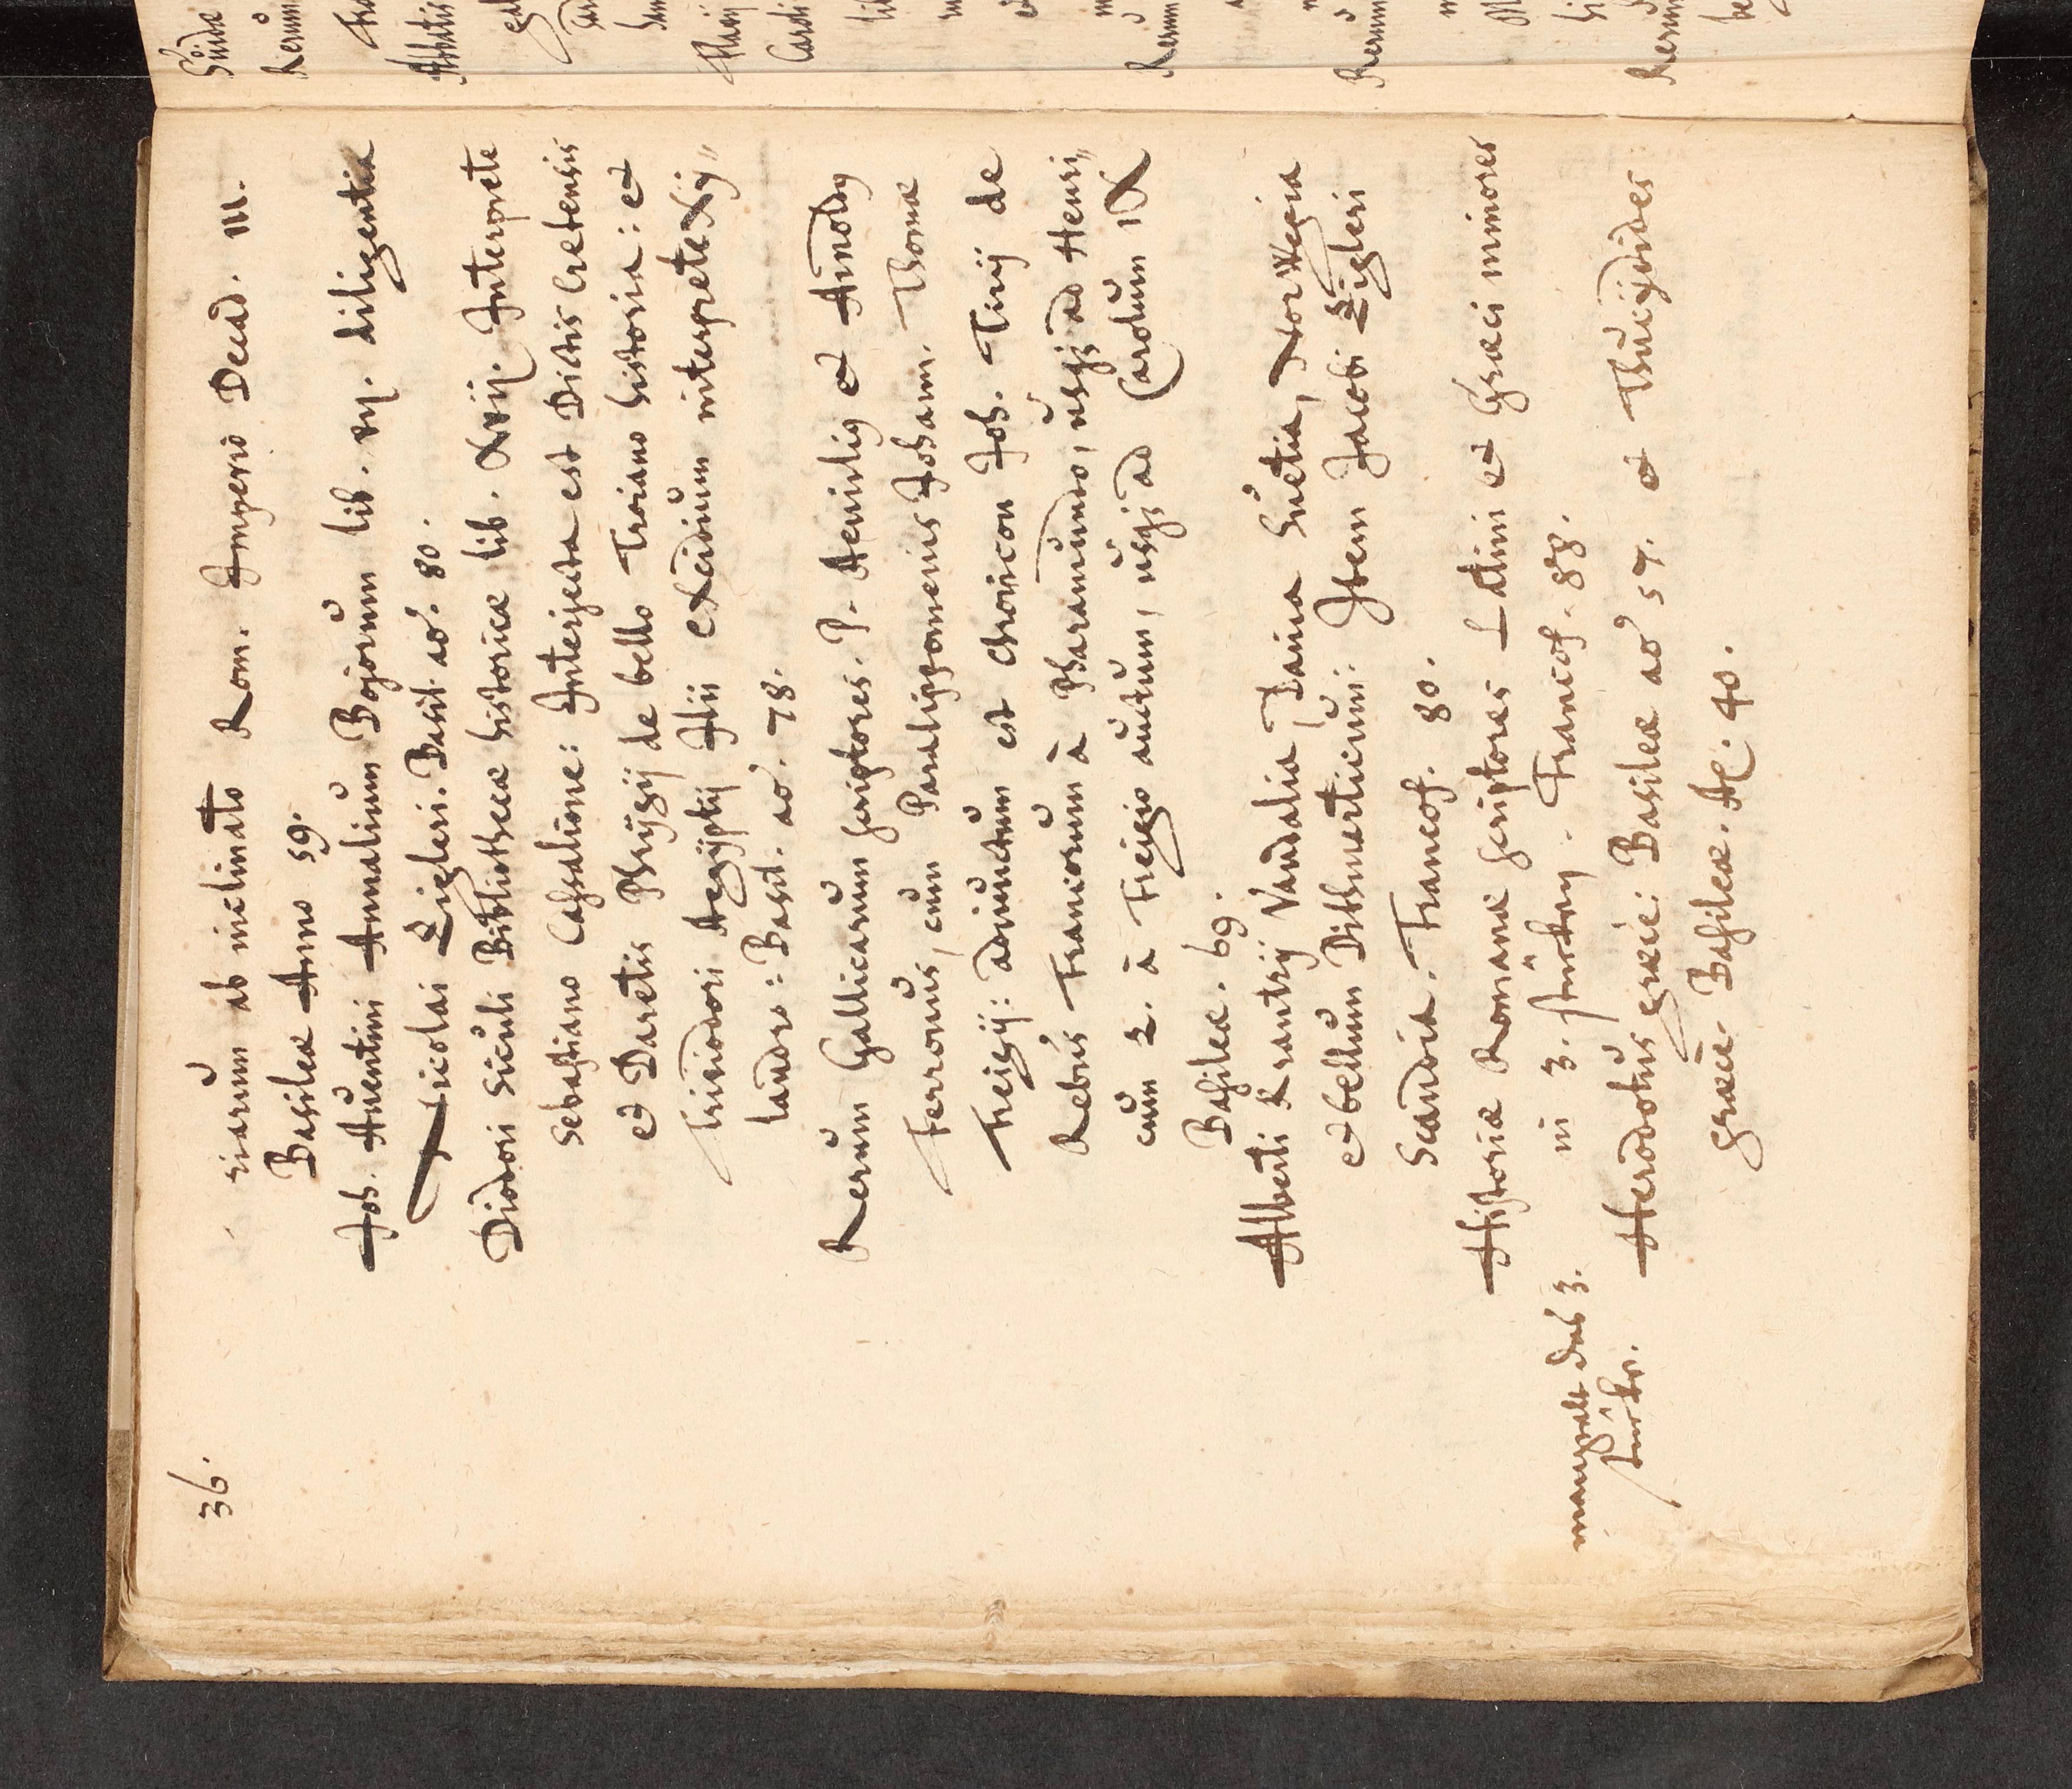 36.
riarum ab inclinato Rom. Imperio Decad. III.
Basileæ Anno 59.
Joh. Auentini Annalium Bojorum lib. vij. diligentia
Nicolai Zigleri. Basil. ao. 80.
Diodori Siculi Bibliothecæ historicæ lib. Xvij. Interprete
Sebastiano Castalione: Interjecta est Dictis Cretensis
et Daretis Phrÿgij de bello Troiano historia: et
Trivodori Aegÿptij Ilii eXcidium interprete Xÿ〃
landro: Basil. ao. 78.
Rerum Gallicarum scriptores. P. Aemilig et Arnoldg
Ferronus, cum Paralippomenis Johann. Thomæ
Freigij: adiunctum est chronicon Joh. Tirij de
Rebus Francorum à Pharamundo, usqz ad Henri〃
cum 2. à Freigio auctum, usqz ad Carolum IX
Basileæ. 69.
Alberti Krantzij Vandalia, Dania Suetia, NorWegia
et bellum Dithmarticum: Item Jacobi Zigleri
Scandia. Francof. 80.
Historiæ Romanæ scriptores Latini et Græci minores
in 3. stucken. Francof. 88.
mangelt das 3.
stuckh.
Herodotus græcè: Basileæ ao 57. et Thucÿdides
græcè. Basileæ. Ao. 40.
Suidæ
Rerum
Abbatis
Caroli
Rerum
Rerum
Rerum